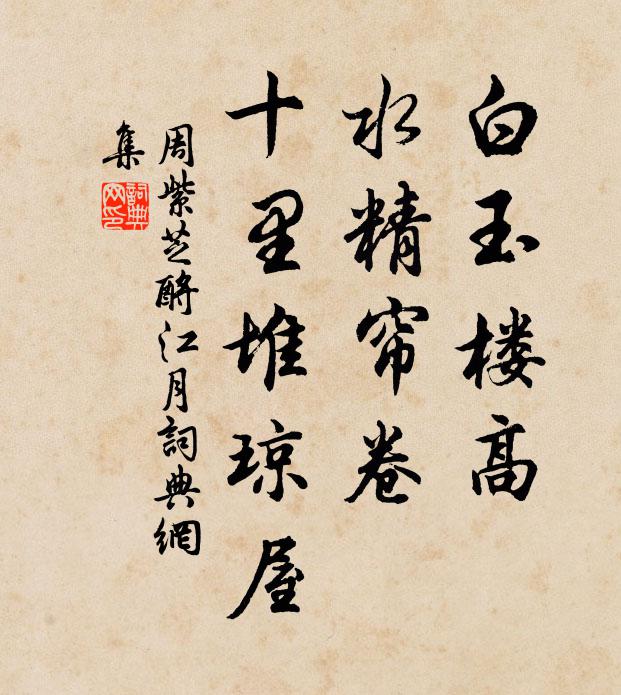 白玉楼高
水精帘卷
十里堆琼屋
周紫芝酹江月詞典網
集
詞典
网印